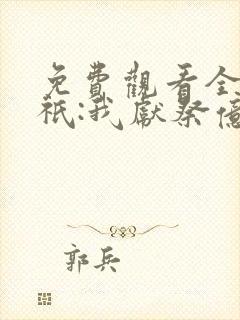 免費觀看全
祇:我獻祭億
郭兵